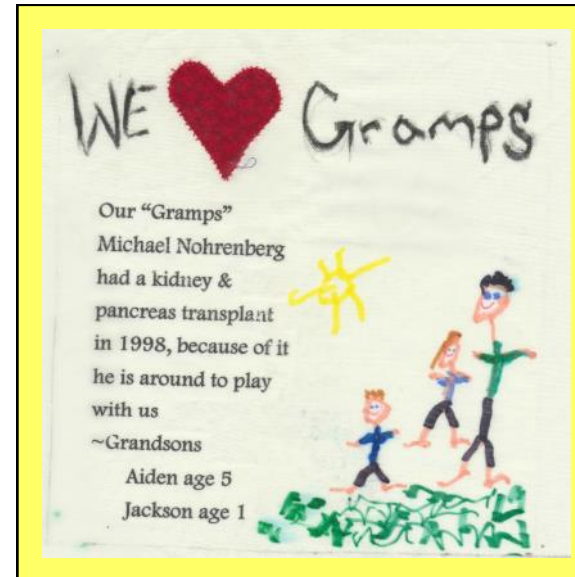 WE Gramps
Our “Gramps”
Michael Nohrenberg
had a kidney &
pancreas transplant
in 1998, because of it
he is around to play
with us
~Grandsons
Aiden age 5
Jackson age 1